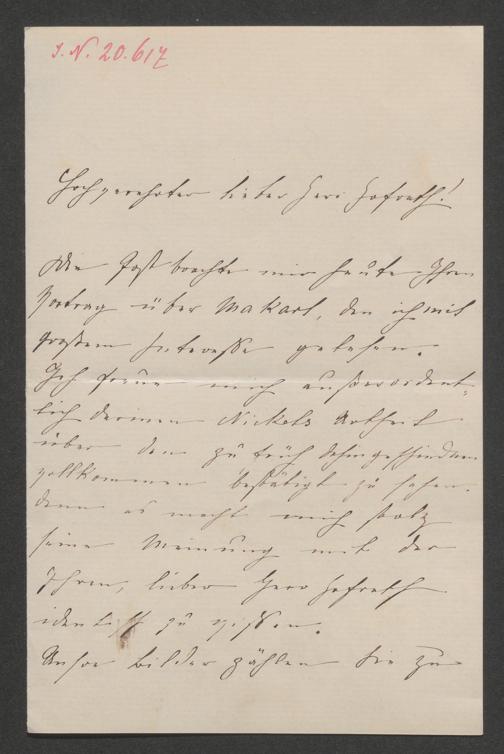 I. N. 20.617
Hochgeehrter lieber Herr Hofrath!
Die Post brachte mir heute Ihren
Vortrag über Makart, den ich mit
großem Interesse gelesen.
Ich freue mich außerordent-
lich darinnen Nickels Urtheil
über den zu früh dahingeschiedenen
vollkommen bestätigt zu sehen.
denn es macht mich stolz
seine Meinung mit der
Ihren, lieber Herr Hofrath
identisch zu wissen.
Unsre Bilder zählen Sie zu